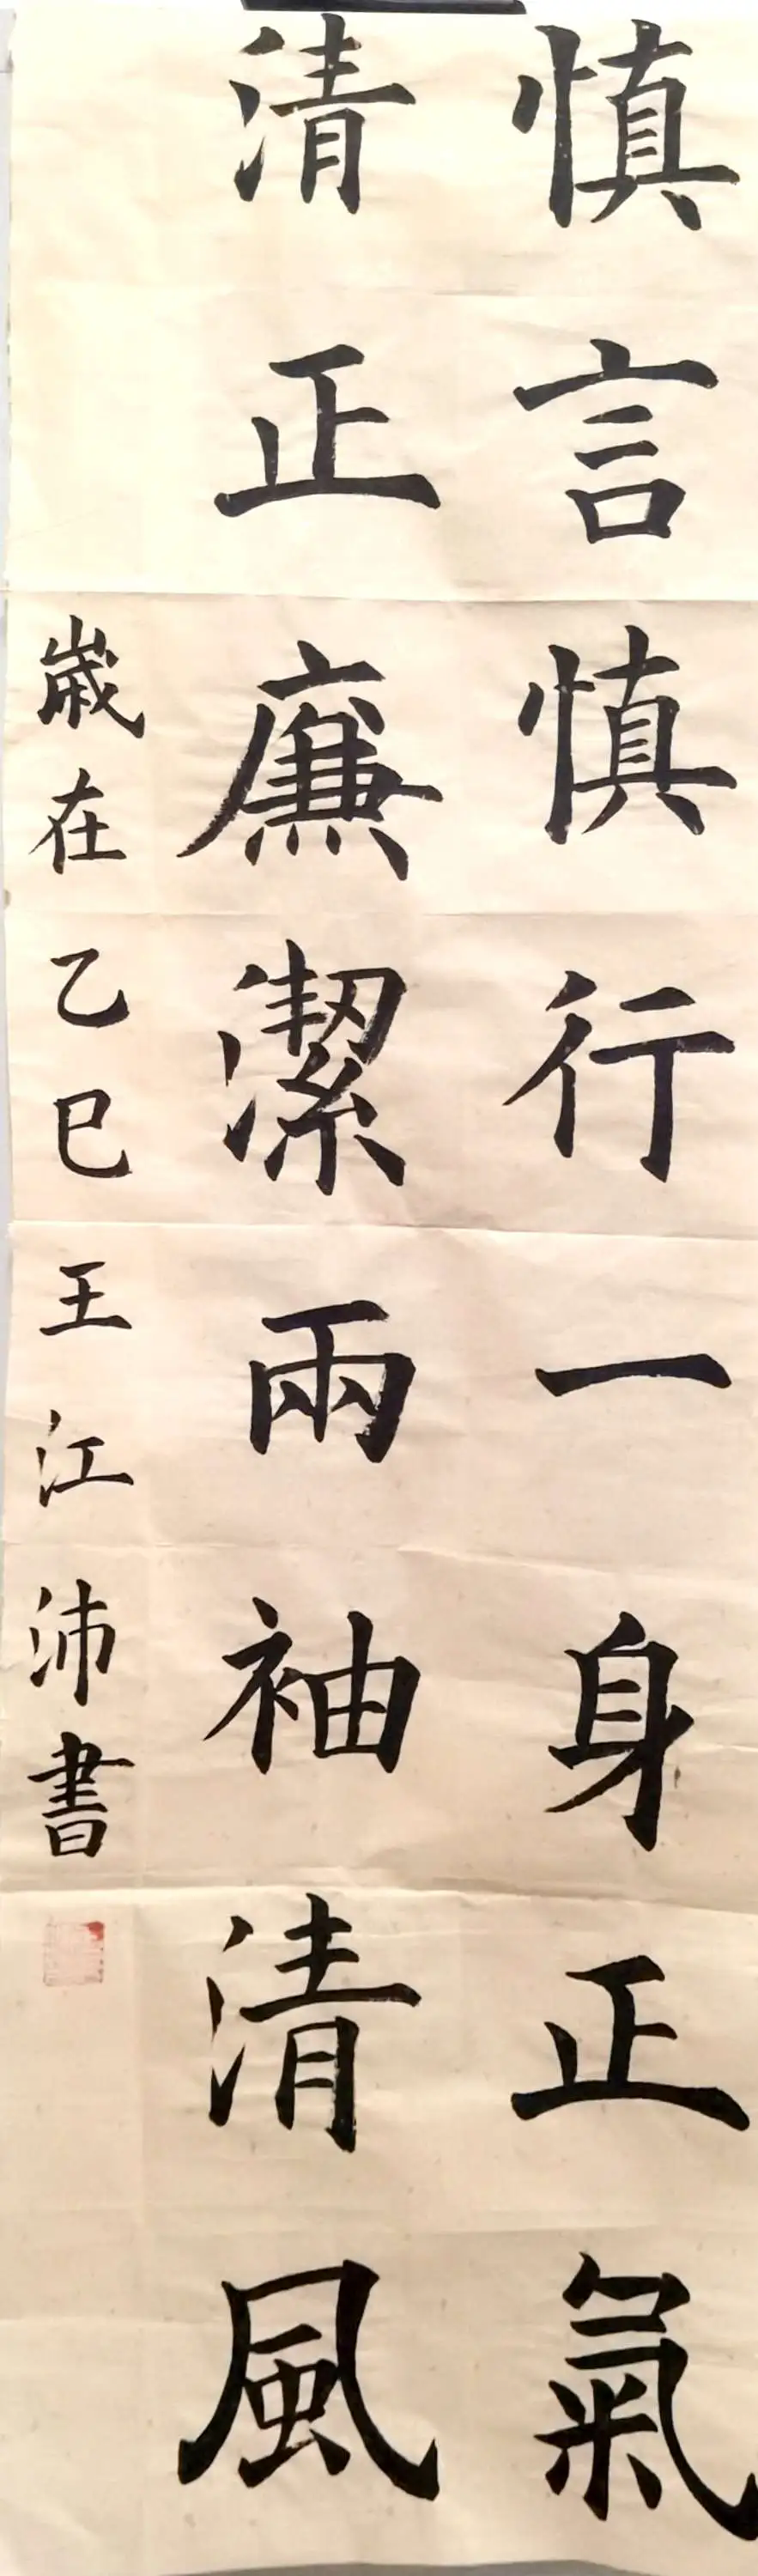 慎言慎行一身正氣
清正廉潔兩袖清風
歲在乙巳王江沛書